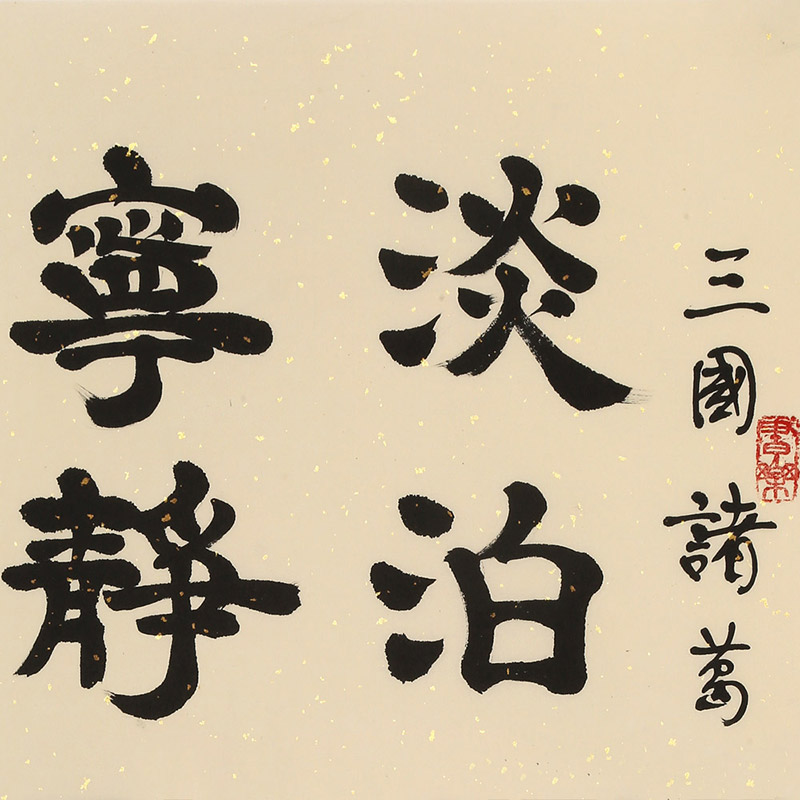 三國諸葛
淡泊
寧靜